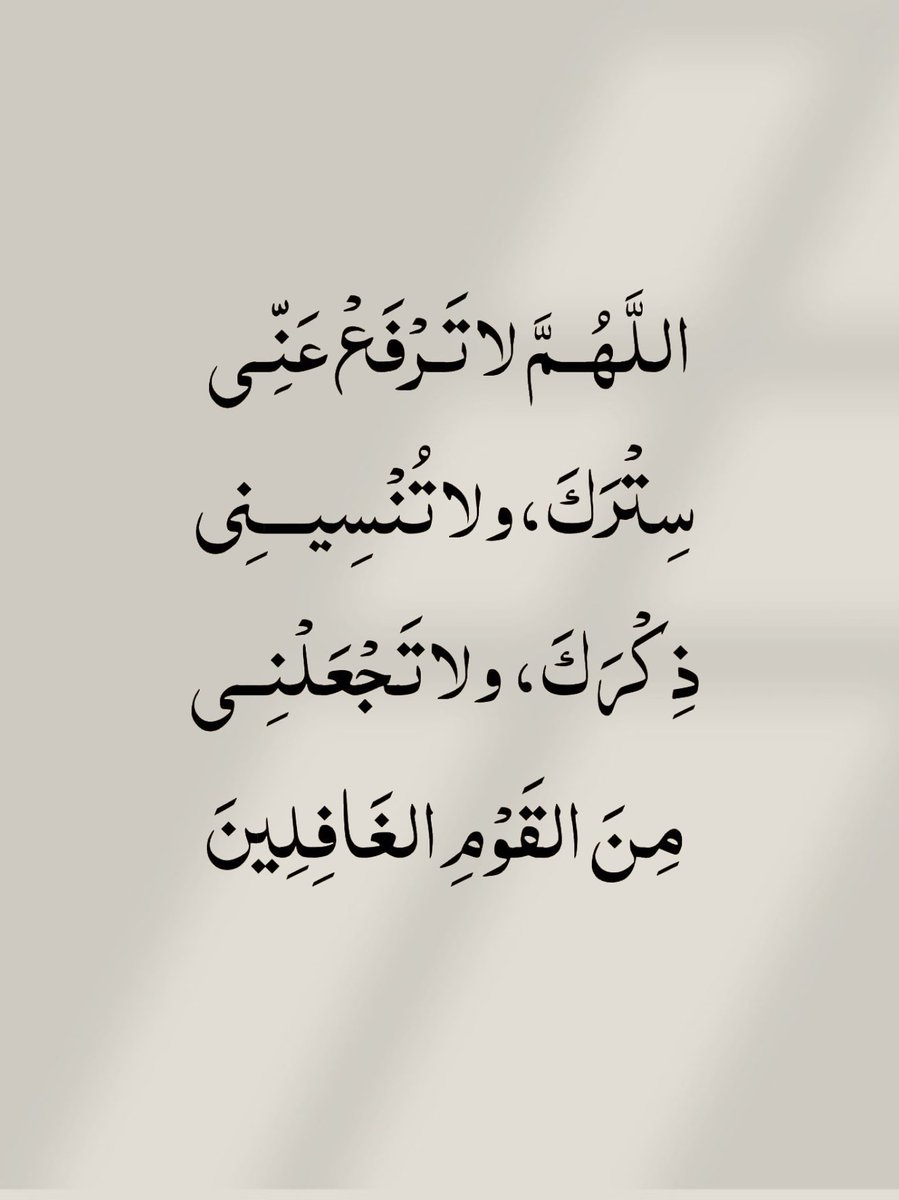 اللَّهُمَّ لا تَرْفَعْ عَنِّى
سِتْرَكَ، ولا تُنْسِينِى
ذِكْرَكَ، ولا تَجْعَلْنِى
مِنَ القَوْمِ الغَافِلِينَ